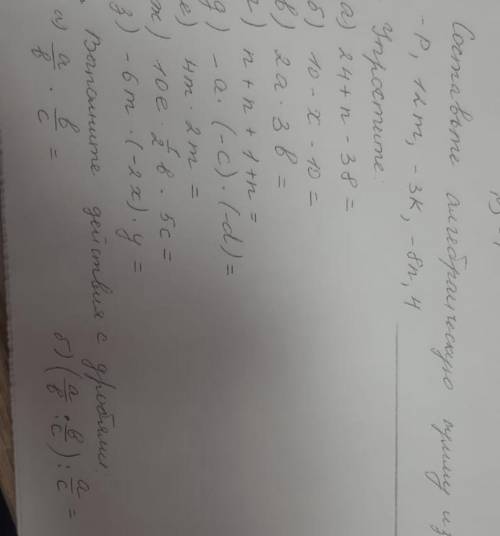 Составьте алгебраическую сумму из
-p, 12m, -3k, -8n, 4
Упростите:
а) 24+n-38=
б) 10-x-10=
в) 2a·3b=
г) n+n+1+n=
д) -a·(-c)·(-d)=
е) 4m·2m=
ж) 10e·1/2 b·5c=
з) -6m·(-2x)·y=
Выполните действия с дробями.
а) a/b · b/c = б) (a/b · b/c) : a/c =